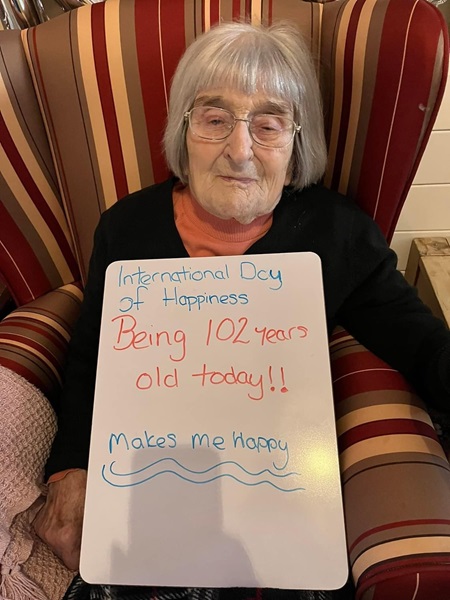 International Day
of Happiness
Being 102 years
old today!!
Makes me Happy